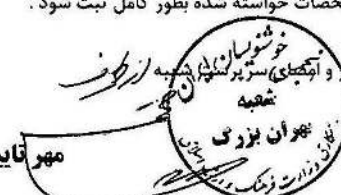 مشخصات خواسته شده بطور کامل ثبت شود .
و امضای سرپرست شعبه از طرف
خوشنویسان ایران
شعبه
تهران بزرگ
وزارت فرهنگ و
مهر تایی